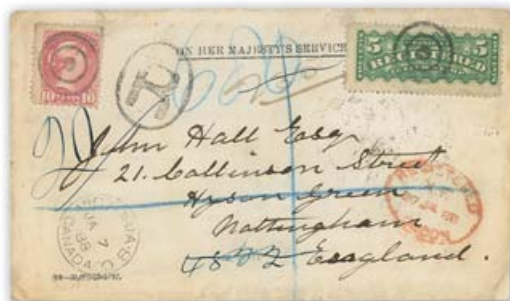 ON HER MAJESTY'S SERVICE
5 REGISTERED 5
10 10
R
20
John Hall Esq
21. Collinson Street
Hyson Green
Nottingham
England.
REGISTERED
JA 7
88
CANADA